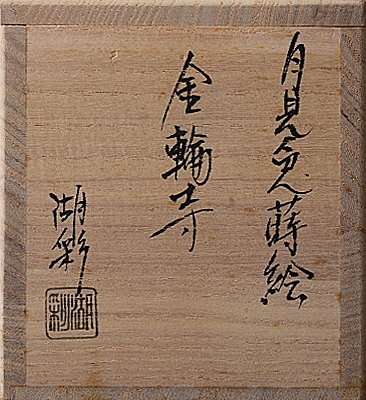 月見兎蒔絵
金輪寺
湖彩
湖彩